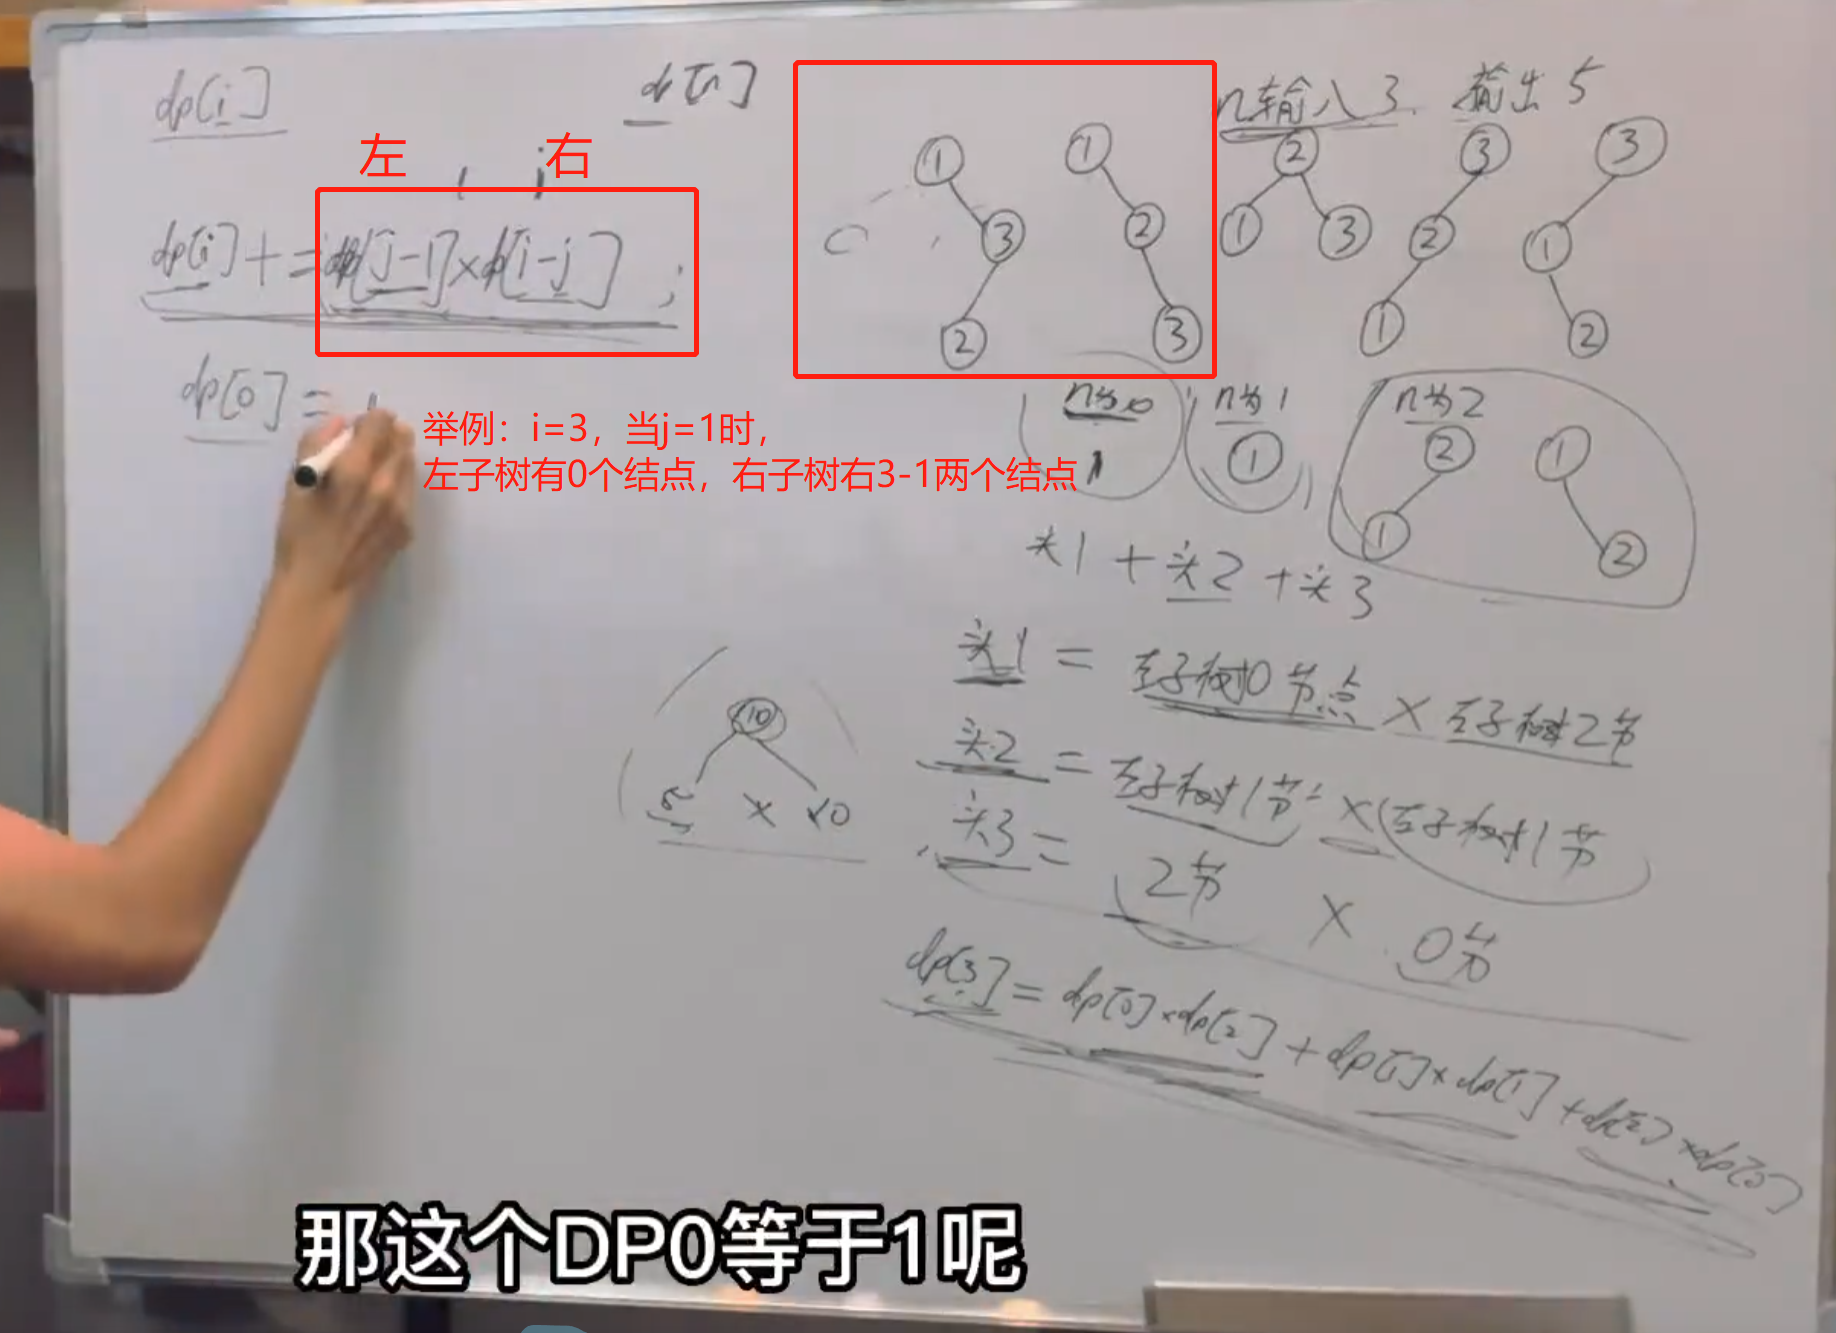 dp[i]
dp[n]
n输入3 输出5
左 右
1 i
dp[i] += dp[j-1]×dp[i-j];
dp[0] = 1
举例：i=3，当j=1时，
左子树有0个结点，右子树右3-1两个结点
1 3 2
1 2 3
2 1 3
3 2 1
3 1 2
n为0
1
n为1
1
n为2
2 1
1 2
头1 + 头2 + 头3
头1 = 左子树0节点 × 左子树2节
头2 = 左子树1节 × 左子树1节
头3 = 2节 × 0节
10
5 × 10
dp[3] = dp[0]×dp[2] + dp[1]×dp[1] + dp[2]×dp[0]
那这个DP0等于1呢